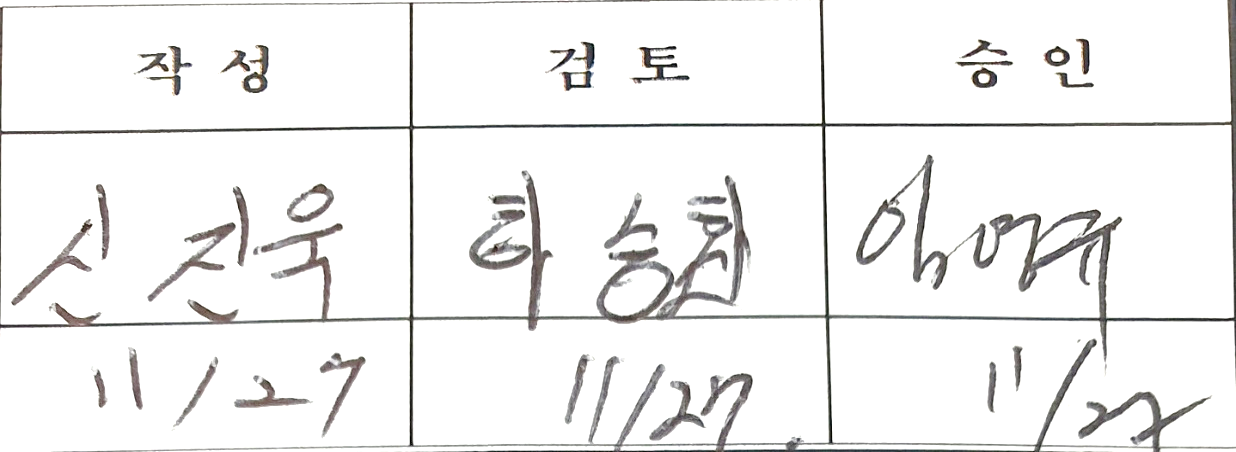 작성 검토 승인
신진욱 하승협
11/27 11/27. 11/27